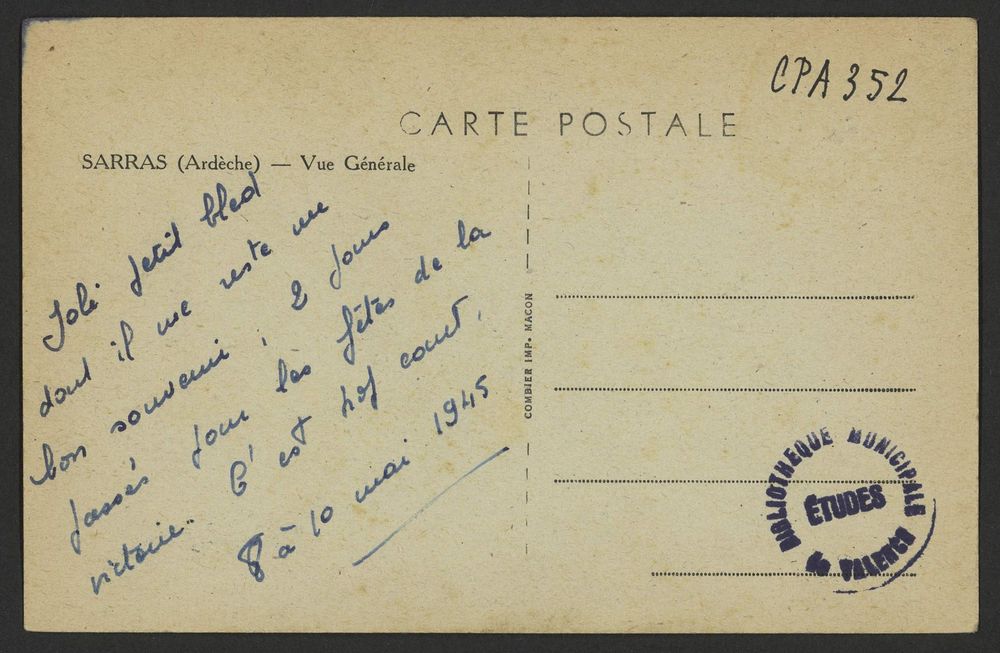 CPA 352
CARTE POSTALE
SARRAS (Ardèche) — Vue Générale
Joli petit bled
dont il me reste un
bon souvenir, 2 jours
passés pour les fêtes de la
victoire. C'est trop court.
8 à 10 mai 1945
COMBIER IMP. MACON
BIBLIOTHEQUE MUNICIPALE
ÉTUDES
de VALENCE